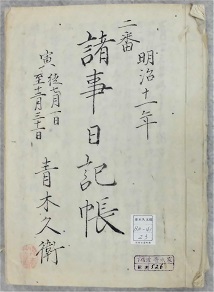 二番
明治十一年
諸事日記帳
寅 従七月一日
至十二月三十一日
青木久衛